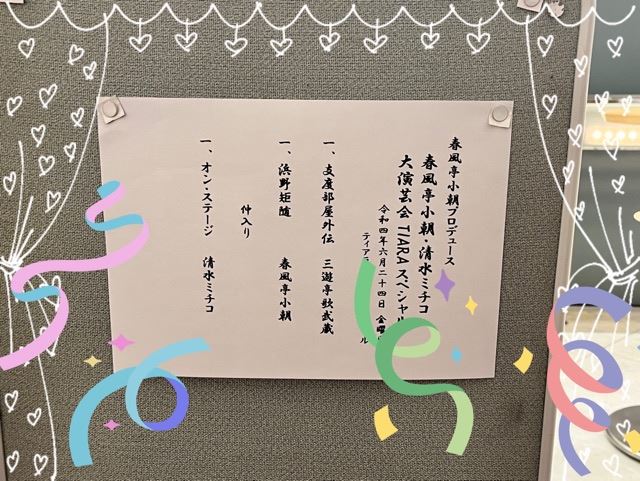 春風亭小朝プロデュース
春風亭小朝・清水ミチコ
大演芸会 TIARAスペシャル
令和四年六月二十四日 金曜
ティアラ ル
一、支度部屋外伝 三遊亭歌武蔵
一、浜野矩随 春風亭小朝
仲入り
一、オン・ステージ 清水ミチコ